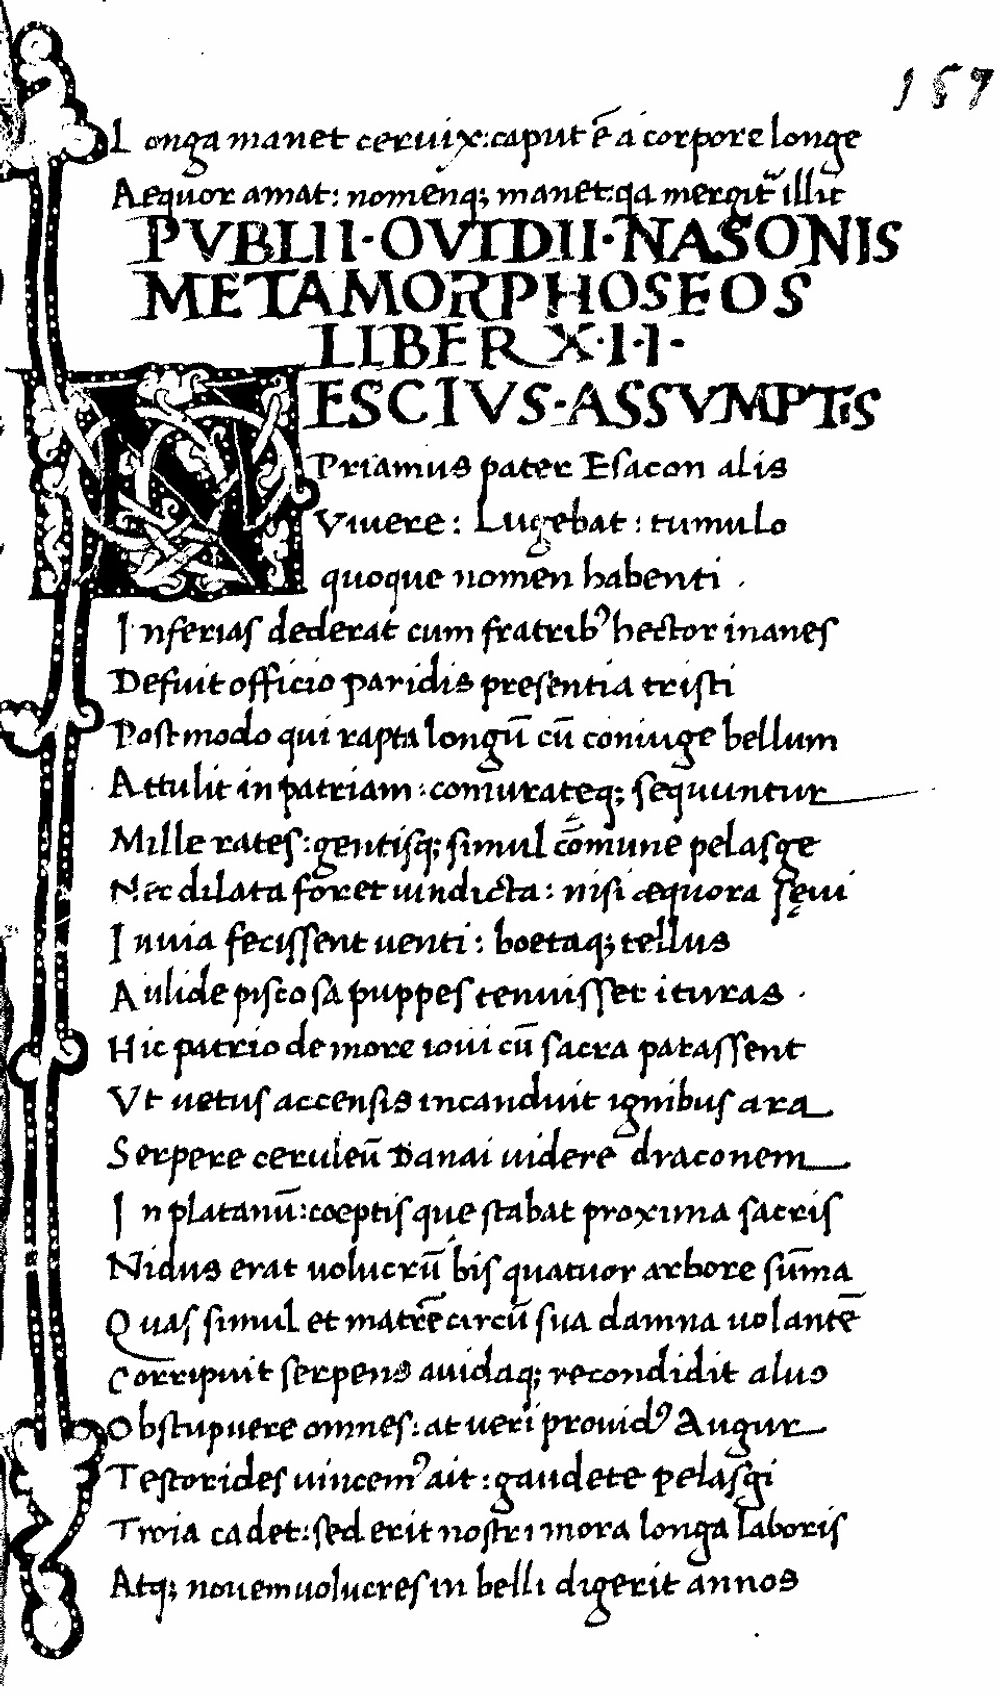 157
Longa manet ceruix: caput ē a corpore longe
Aequor amat: nomenq; manet: qa mergit᷑ illic
PVBLII·OVIDII·NASONIS
METAMORPHOSEOS
LIBER X·I·I·
NESCIVS·ASSVMPTIS
Priamus pater Esacon alis
Viuere: Lugebat: tumulo
quoque nomen habenti .
Inferias dederat cum fratribꝰ hector inanes
Defuit officio paridis presentia tristi
Postmodo qui rapta longū cū coniuge bellum
Attulit in patriam: coniuratęq; sequuntur
Mille rates: gentisq; simul cōmune pelasge
Nec dilata foret uindicta: nisi æquora sęui
Inuia fecissent uenti: boetaq; tellus
Aulide piscosa puppes tenuisset ituras .
Hic patrio de more ioui cū sacra patassent
Vt uetus accensis incanduit ignibus ara
Serpere ceruleū Danai uidere draconem
In platanū: coeptis que stabat proxima sacris
Nidus erat uolucrū bis quatuor arbore sūma
Quas simul et matrē circū sua damna uolantē
Corripuit serpens auidaq; recondidit aluo
Obstupuere omnes: at ueri prouidꝰ Augur
Testorides uincemꝰ ait: gaudete pelasgi
Troia cadet: sed erit nostri mora longa laboris
Atq; nouem uolucres in belli digerit annos